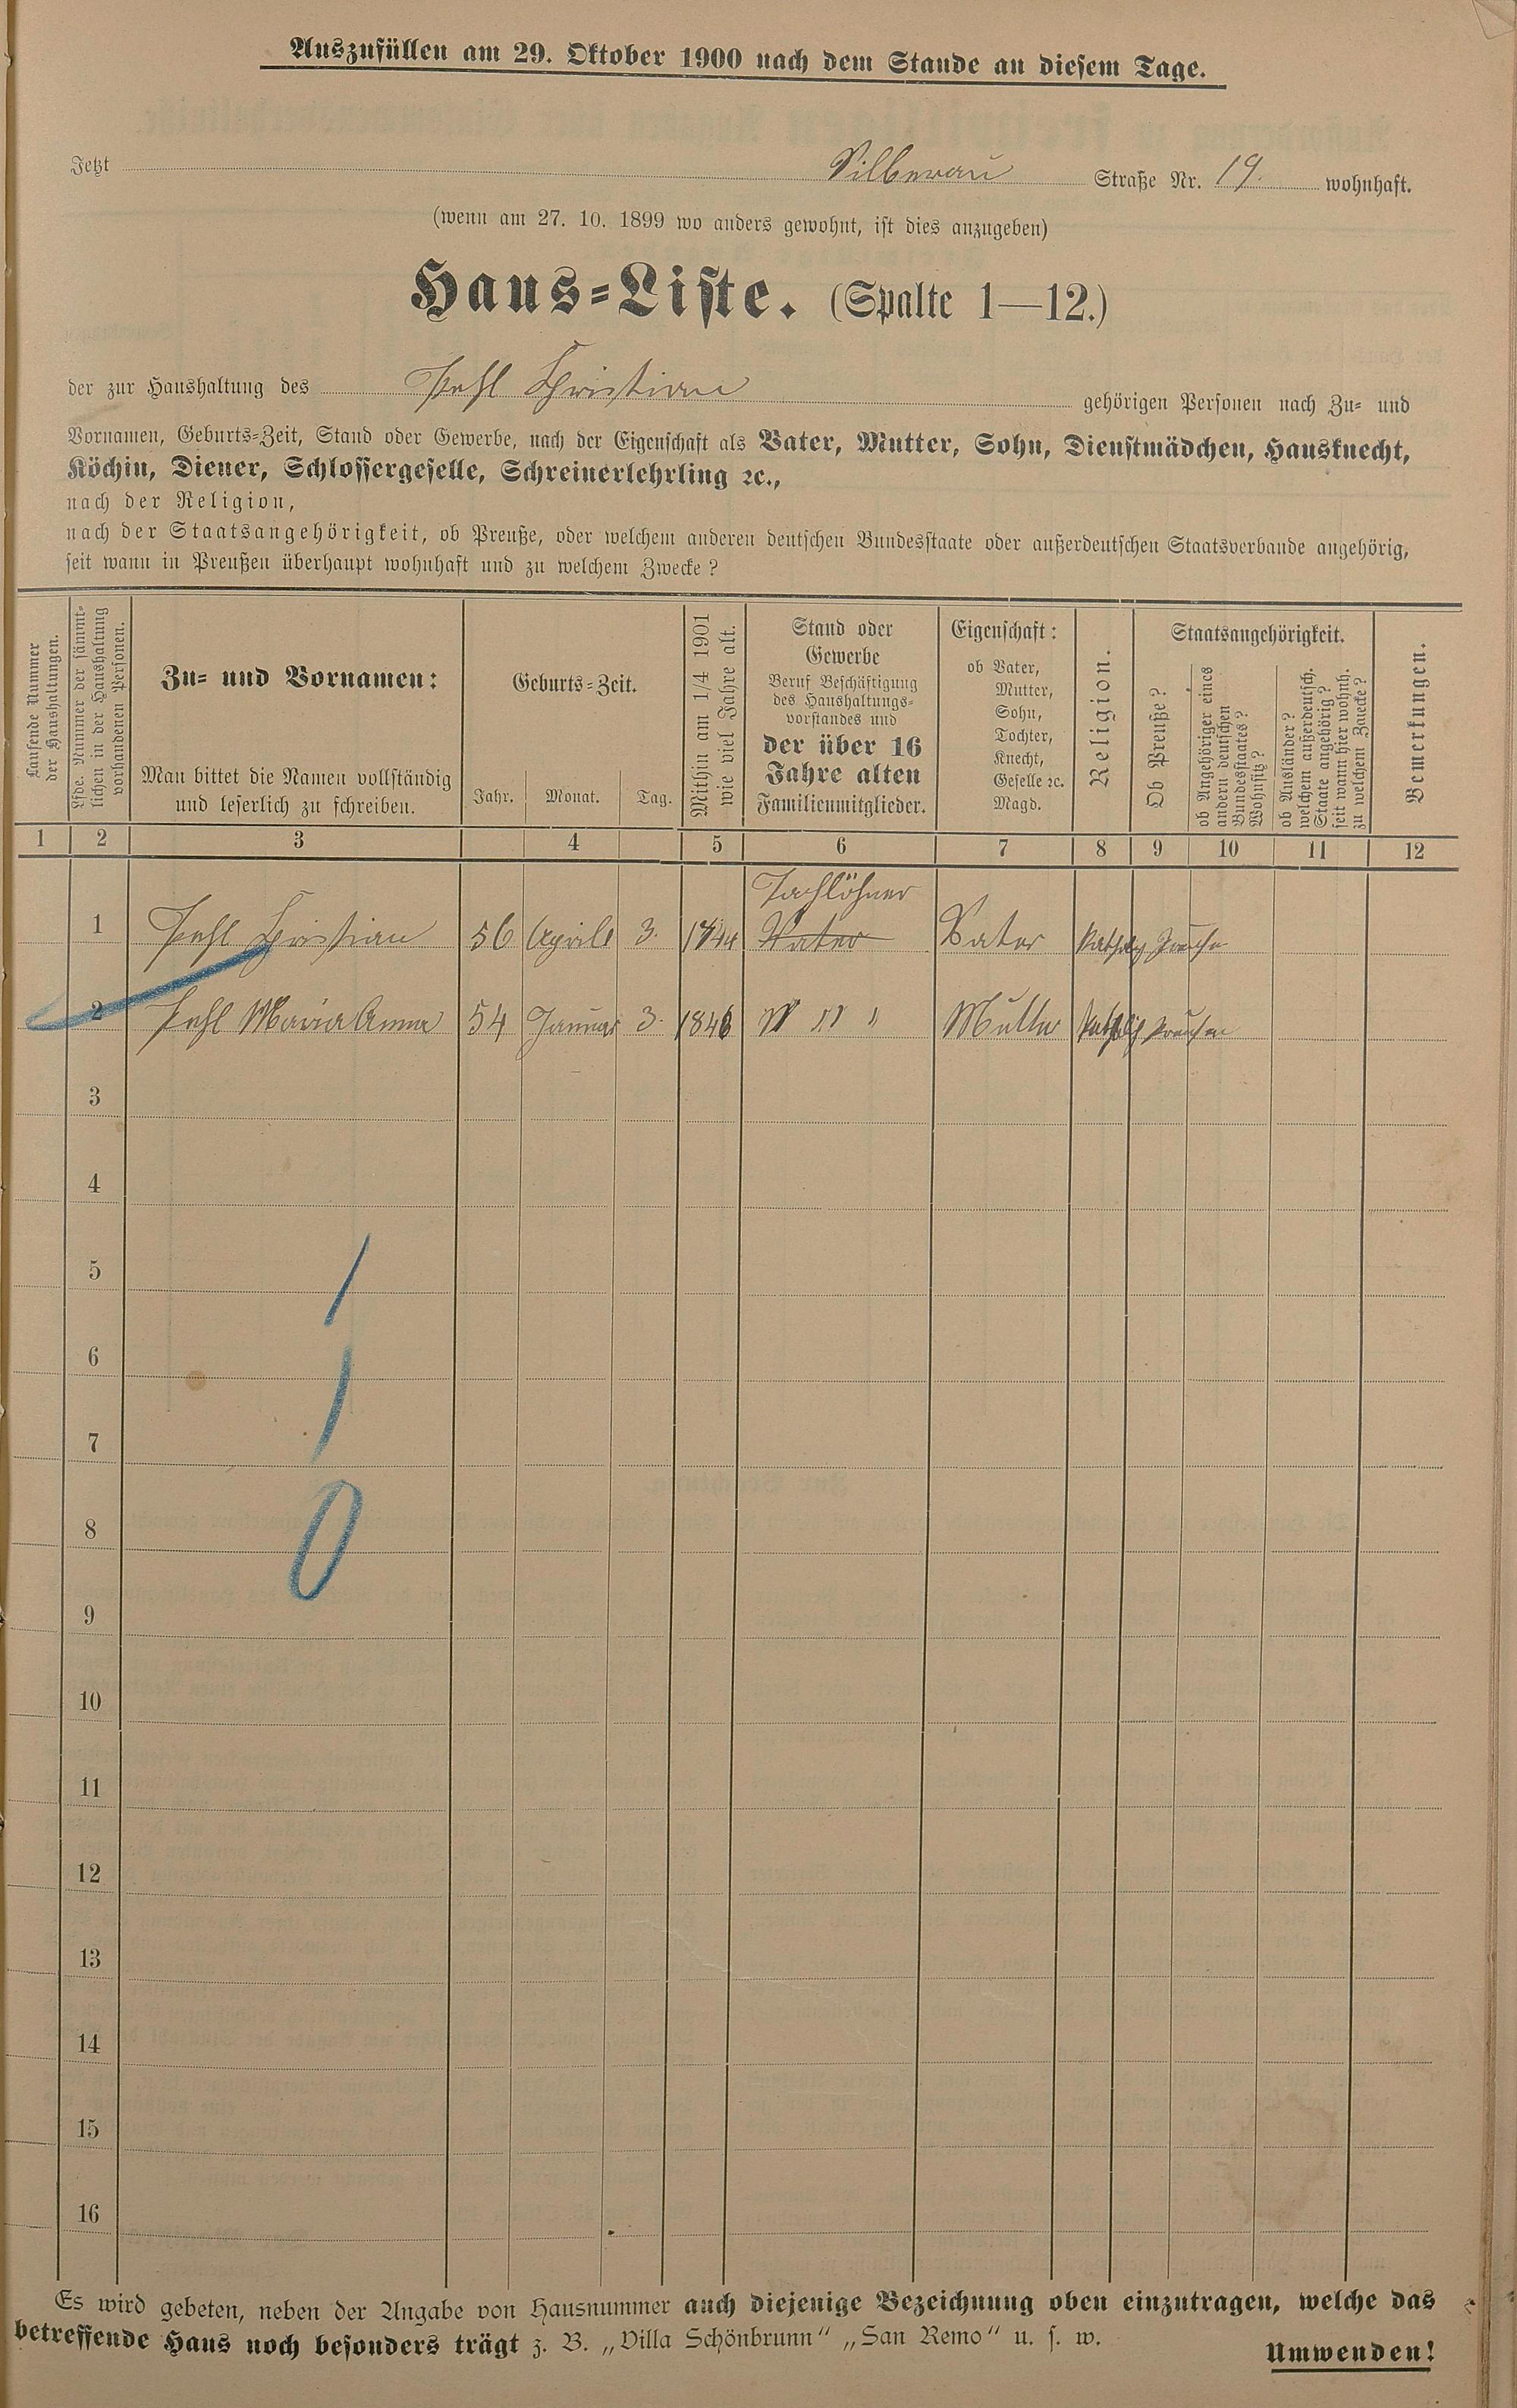 Auszufüllen am 29. Oktober 1900 nach dem Stande an diesem Tage.
Jetzt Silberau Straße Nr. 19. wohnhaft.
(wenn am 27. 10. 1899 wo anders gewohnt, ist dies anzugeben)
Haus-Liste. (Spalte 1—12.)
der zur Haushaltung des Pehl Christian gehörigen Personen nach Zu- und
Vornamen, Geburts-Zeit, Stand oder Gewerbe, nach der Eigenschaft als Vater, Mutter, Sohn, Dienstmädchen, Hausknecht,
Köchin, Diener, Schlossergeselle, Schreinerlehrling ꝛc.,
nach der Religion,
nach der Staatsangehörigkeit, ob Preuße, oder welchem anderen deutschen Bundesstaate oder außerdeutschen Staatsverbande angehörig,
seit wann in Preußen überhaupt wohnhaft und zu welchem Zwecke?
Laufende Nummer
der Haushaltungen.
Lfde. Nummer der sämmt-
lichen in der Haushaltung
vorhandenen Personen.
Zu- und Vornamen:
Man bittet die Namen vollständig
und leserlich zu schreiben.
Geburts-Zeit.
Jahr. Monat. Tag.
Mithin am 1/4 1901
wie viel Jahre alt.
Stand oder
Gewerbe
Beruf Beschäftigung
des Haushaltungs-
vorstandes und
der über 16
Jahre alten
Familienmitglieder.
Eigenschaft:
ob Vater,
Mutter,
Sohn,
Tochter,
Knecht,
Geselle ꝛc.
Magd.
Religion.
Staatsangehörigkeit.
Ob Preuße?
ob Angehöriger eines
andern deutschen
Bundesstaates?
Wohnsitz?
ob Ausländer?
welchem außerdeutsch.
Staate angehörig?
seit wann hier wohnh.
zu welchem Zwecke?
Bemerkungen.
1 2 3 4 5 6 7 8 9 10 11 12
Tachlöhner
1 Pehl Christian 56 Aprils 3. 1844 Vater Vater
2 Pehl Maria Anna 54 Januar 3. 1846 " " " Mutter
3
4
5
6
7
8
9
10
11
12
13
14
15
16
Es wird gebeten, neben der Angabe von Hausnummer auch diejenige Bezeichnung oben einzutragen, welche das
betreffende Haus noch besonders trägt z. B. „Villa Schönbrunn“ „San Remo“ u. s. w.
Umwenden!